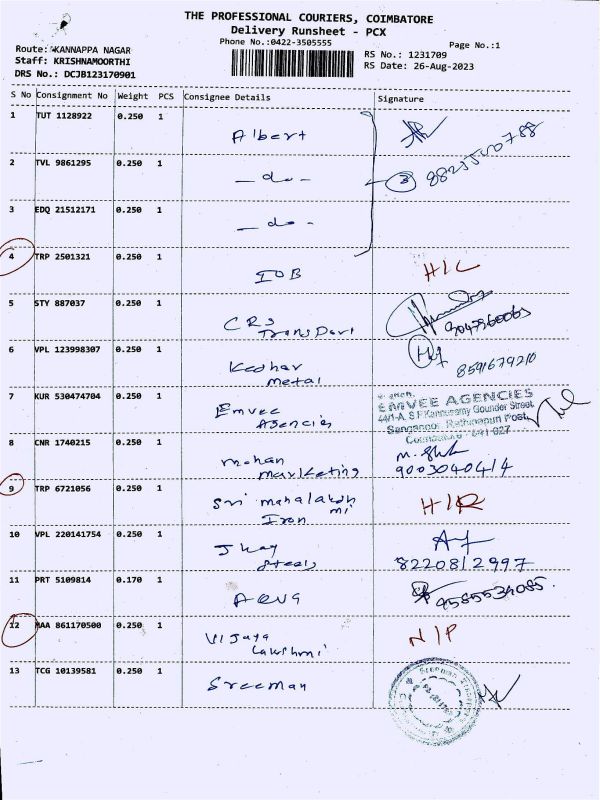 THE PROFESSIONAL COURIERS, COIMBATORE
Delivery Runsheet - PCX
Phone No.:0422-3505555
Page No.:1
Route: KANNAPPA NAGAR
RS No.: 1231709
Staff: KRISHNAMOORTHI
RS Date: 26-Aug-2023
DRS No.: DCJB123170901
S No Consignment No Weight PCS Consignee Details Signature
1 TUT 1128922 0.250 1
Albert
2 TVL 9861295 0.250 1
- do - 3
3 EDQ 21512171 0.250 1
- do -
4 TRP 2501321 0.250 1
IOB H/C
5 STY 887037 0.250 1
CRS
Transport 9047360063
6 VPL 123998307 0.250 1
Kedhar 8591679210
metal
7 KUR 530474704 0.250 1
Emvee EMVEE AGENCIES
Agencies 44/1-A, S P Kannusamy Gounder Street
Sanganoor, Rathinapuri Post,
Coimbatore - 641 027
8 CNR 1740215 0.250 1
mohan
marketing 9003040414
9 TRP 6721056 0.250 1
Sri mahalaksh mi H/R
Iron
10 VPL 220141754 0.250 1
Jkay
Steels 8220812997
11 PRT 5109814 0.170 1
AQUA 9585534085
12 MAA 861170500 0.250 1
Vijaya N/P
Lakshmi
13 TCG 10139581 0.250 1
Sreeman